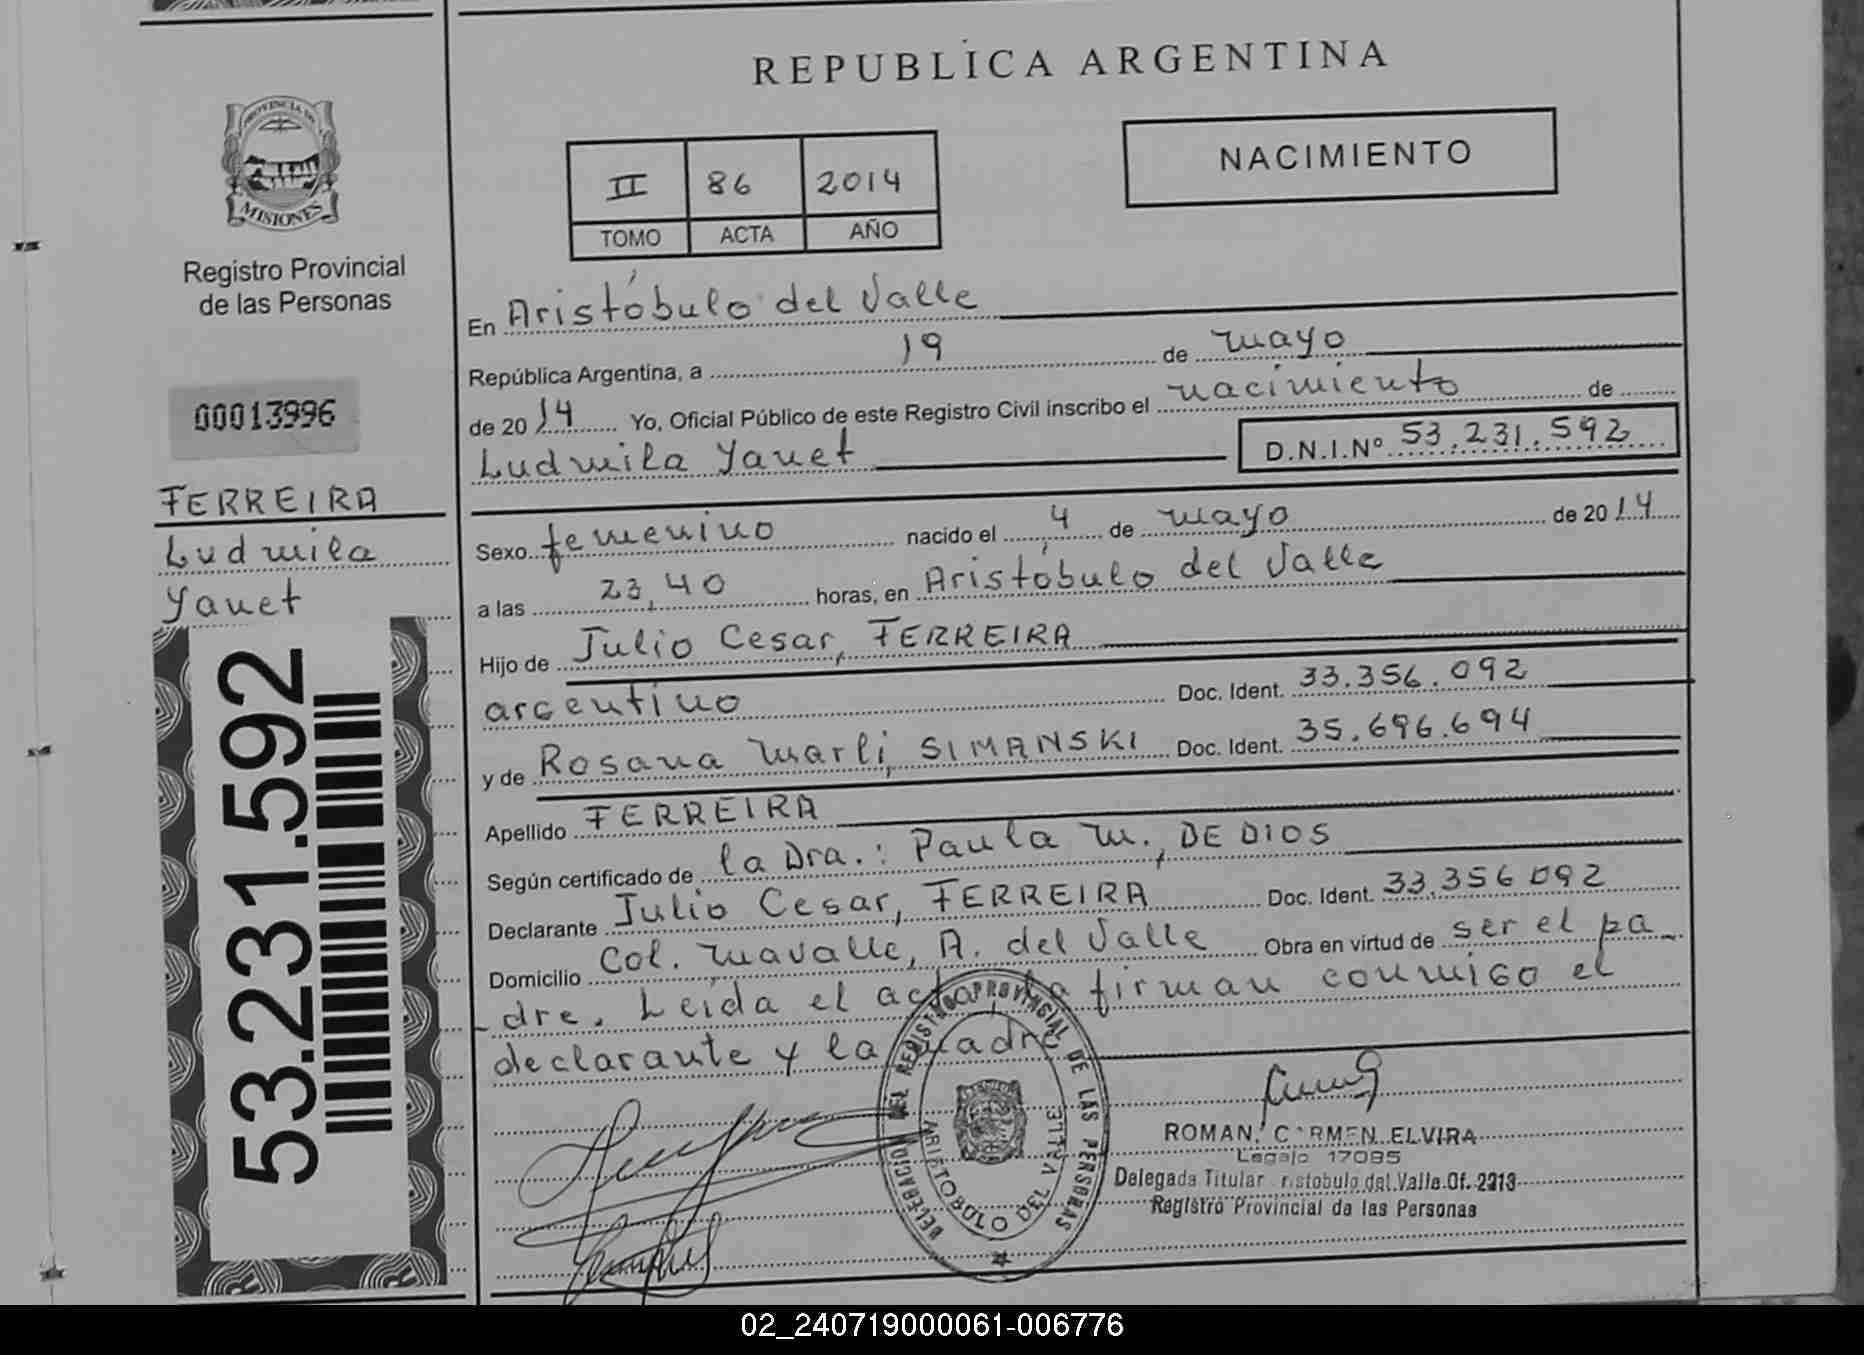 REPUBLICA ARGENTINA
PROVINCIA DE
MISIONES
Registro Provincial
de las Personas
00013996
FERREIRA
Ludmila
Yanet
53.231.592
NACIMIENTO
II 86 2014
TOMO ACTA AÑO
En Aristóbulo del Valle
República Argentina, a 19 de mayo
de 2014 Yo, Oficial Público de este Registro Civil inscribo el nacimiento de
Ludmila Yanet D.N.I.Nº 53.231.592
Sexo femenino nacido el 4 de mayo de 2014
a las 23,40 horas, en Aristóbulo del Valle
Hijo de Julio Cesar, FERREIRA
argentino Doc. Ident. 33.356.092
y de Rosana Marli, SIMANSKI Doc. Ident. 35.696.694
Apellido FERREIRA
Según certificado de la Dra.: Paula M., DE DIOS
Declarante Julio Cesar, FERREIRA Doc. Ident. 33.356092
Domicilio Col. Mavalle, A. del Valle Obra en virtud de ser el pa_
_dre. Leida el acta, la firman conmigo el
declarante y la madre
DELEGACION DEL REGISTRO PROVINCIAL DE LAS PERSONAS
ARISTOBULO DEL VALLE
ROMAN, CARMEN ELVIRA
Legajo 17095
Delegada Titular ristobulo del Valle Of. 2213
Registro Provincial de las Personas
02_240719000061-006776